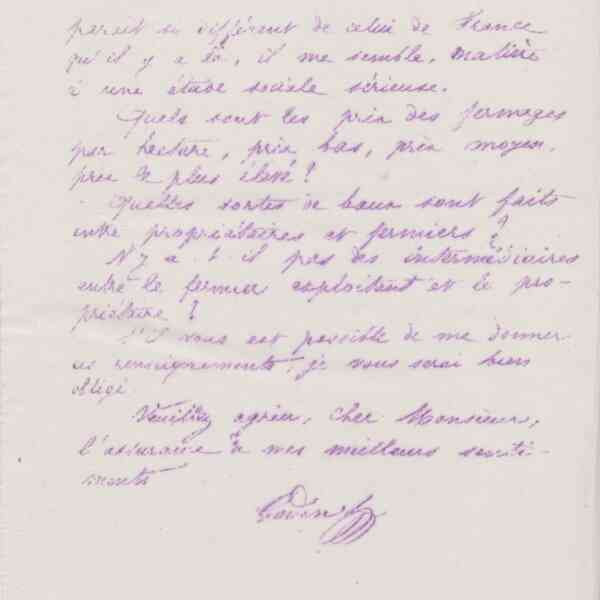 parait si différent de celui de France
qu'il y a là, il me semble, matière
à une étude sociale sérieuse.
Quels sont les prix des fermages
par hectare, prix bas, prix moyen,
prix le plus élevé ?
Quelles sortes de baux sont faits
entre propriétaires et fermiers ?
N'y a-t-il pas des intermédiaires
entre le fermier exploitant et le pro-
priétaire ?
S'il vous est possible de me donner
ces renseignements, je vous serai bien
obligé
Veuillez agréer, cher Monsieur,
l'assurance de mes meilleurs senti-
ments